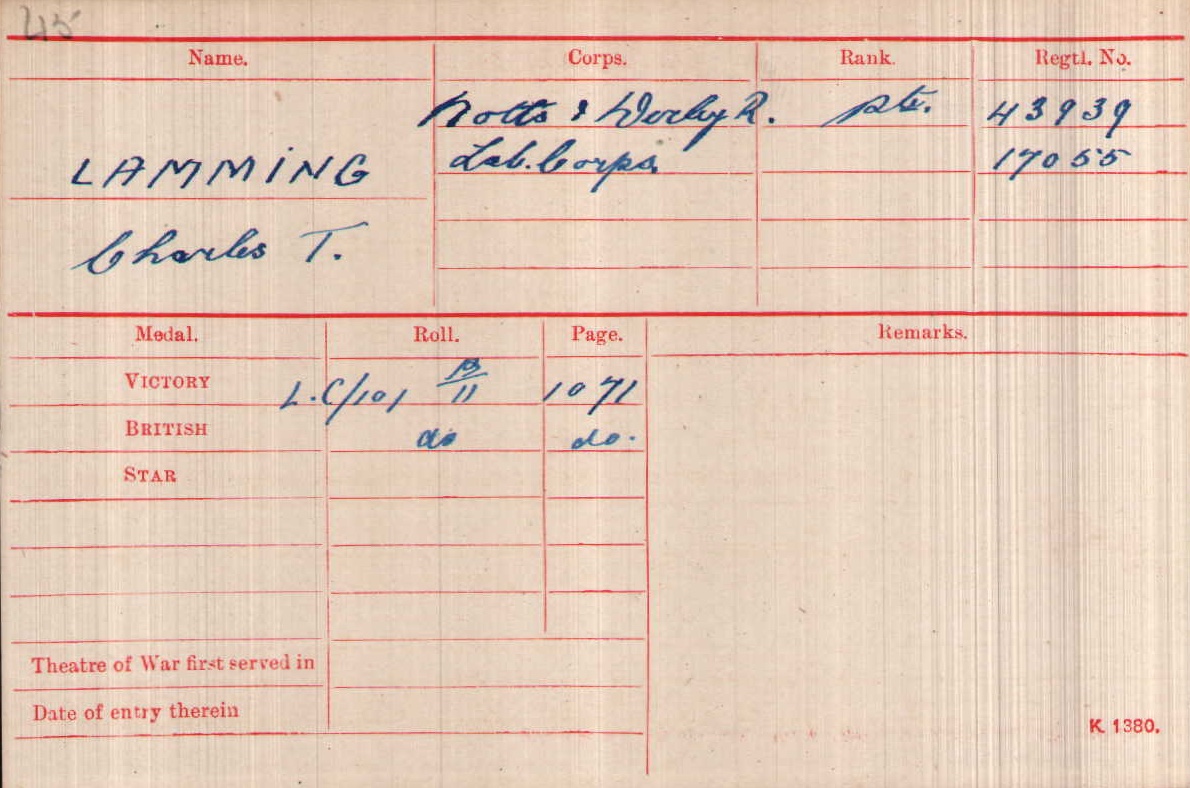 45
Name. Corps. Rank. Regtl. No.
Notts & Derby R. Pte. 43939
LAMMING Lab. Corps. 17055
Charles T.
Medal. Roll. Page. Remarks.
VICTORY L.C/101 B/11 1071
BRITISH do do.
STAR
Theatre of War first served in
Date of entry therein
K 1380.